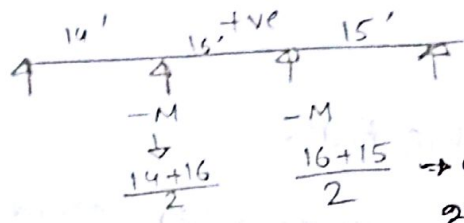 14' 16' +ve 15'
-M -M
↓
14+16/2 16+15/2 →